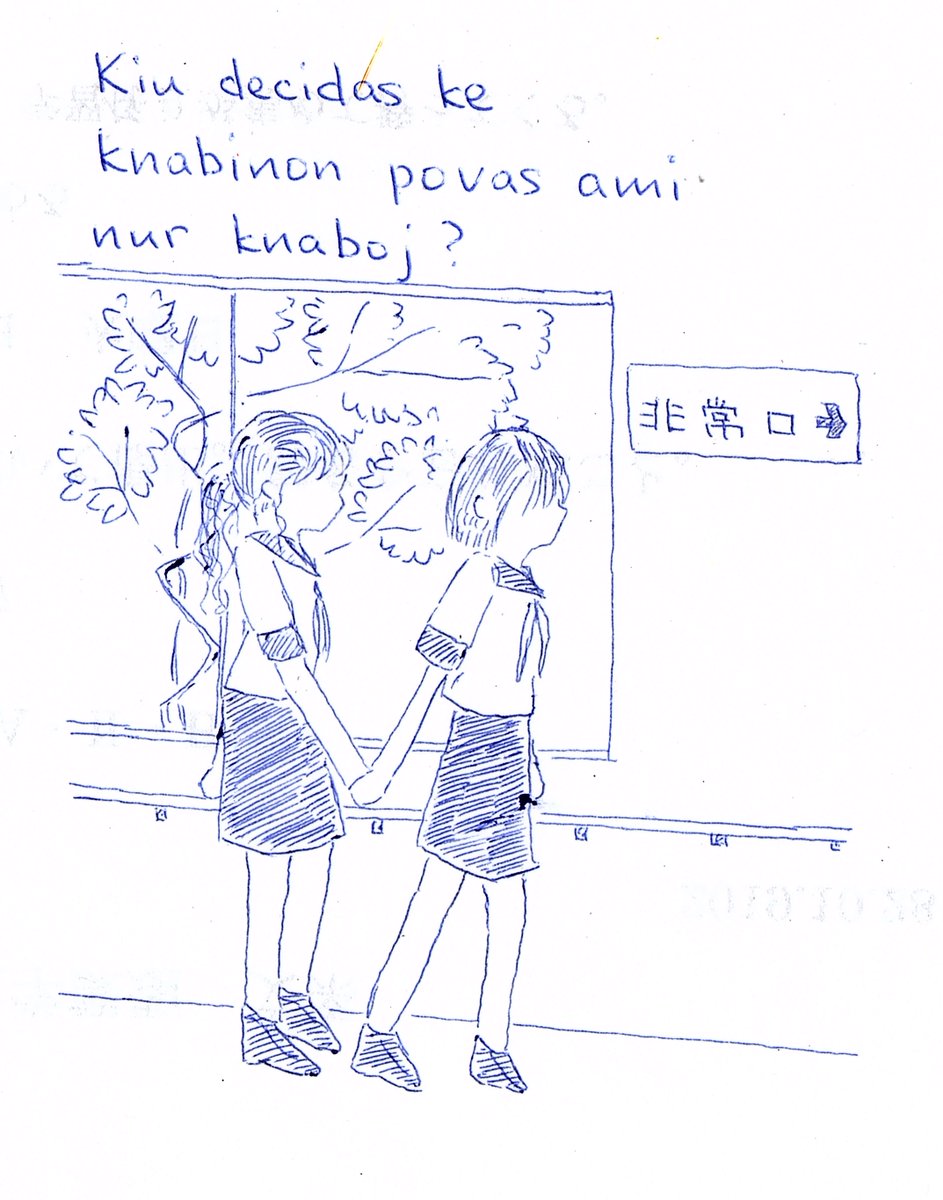 Kiu decidas ke
knabinon povas ami
nur knaboj?
非常口➡